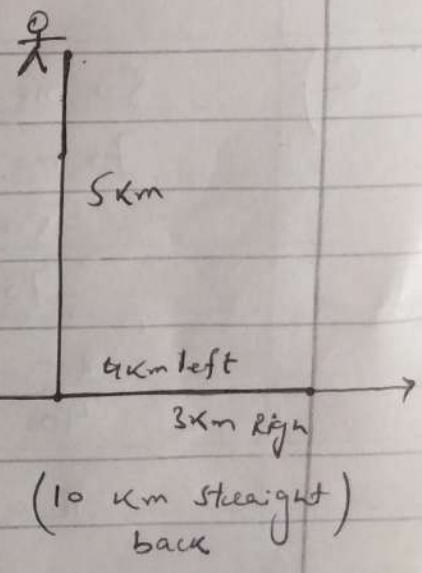 5 Km
4 Km left
3 Km Righ
(10 Km straight)
back